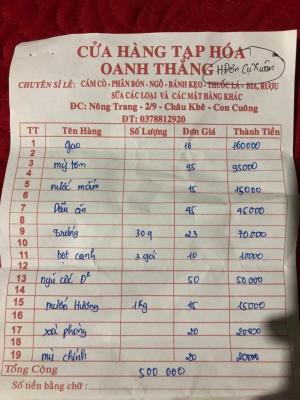 CỬA HÀNG TẠP HÓA
OANH THẮNG
HĐơn Cụ Xuân
CHUYÊN SỈ LẺ: CÁM CÒ - PHÂN BÓN - NGÔ - BÁNH KẸO - THUỐC LÁ - BIA, RƯỢU
SỮA CÁC LOẠI VÀ CÁC MẶT HÀNG KHÁC
ĐC: Nông Trang - 2/9 - Châu Khê - Con Cuông
ĐT: 0378812920
TT Tên Hàng Số Lượng Đơn Giá Thành Tiền
1 gạo 16 160000
2
3 mỳ tôm 95 95000
4
5 nước mắm 15 15000
6
7 Dầu ăn 45 45000
8
9 Trứng 30q 23 70000
10
11 bột canh 3 gói 10 10000
12
13 ngũ cốc 50 50.000
14
15 muối Hương 1kg 15 15000
16
17 xà phòng 20 20000
18
19 mỳ chính 20 20000
Tổng Cộng 500 000
Số tiền bằng chữ: